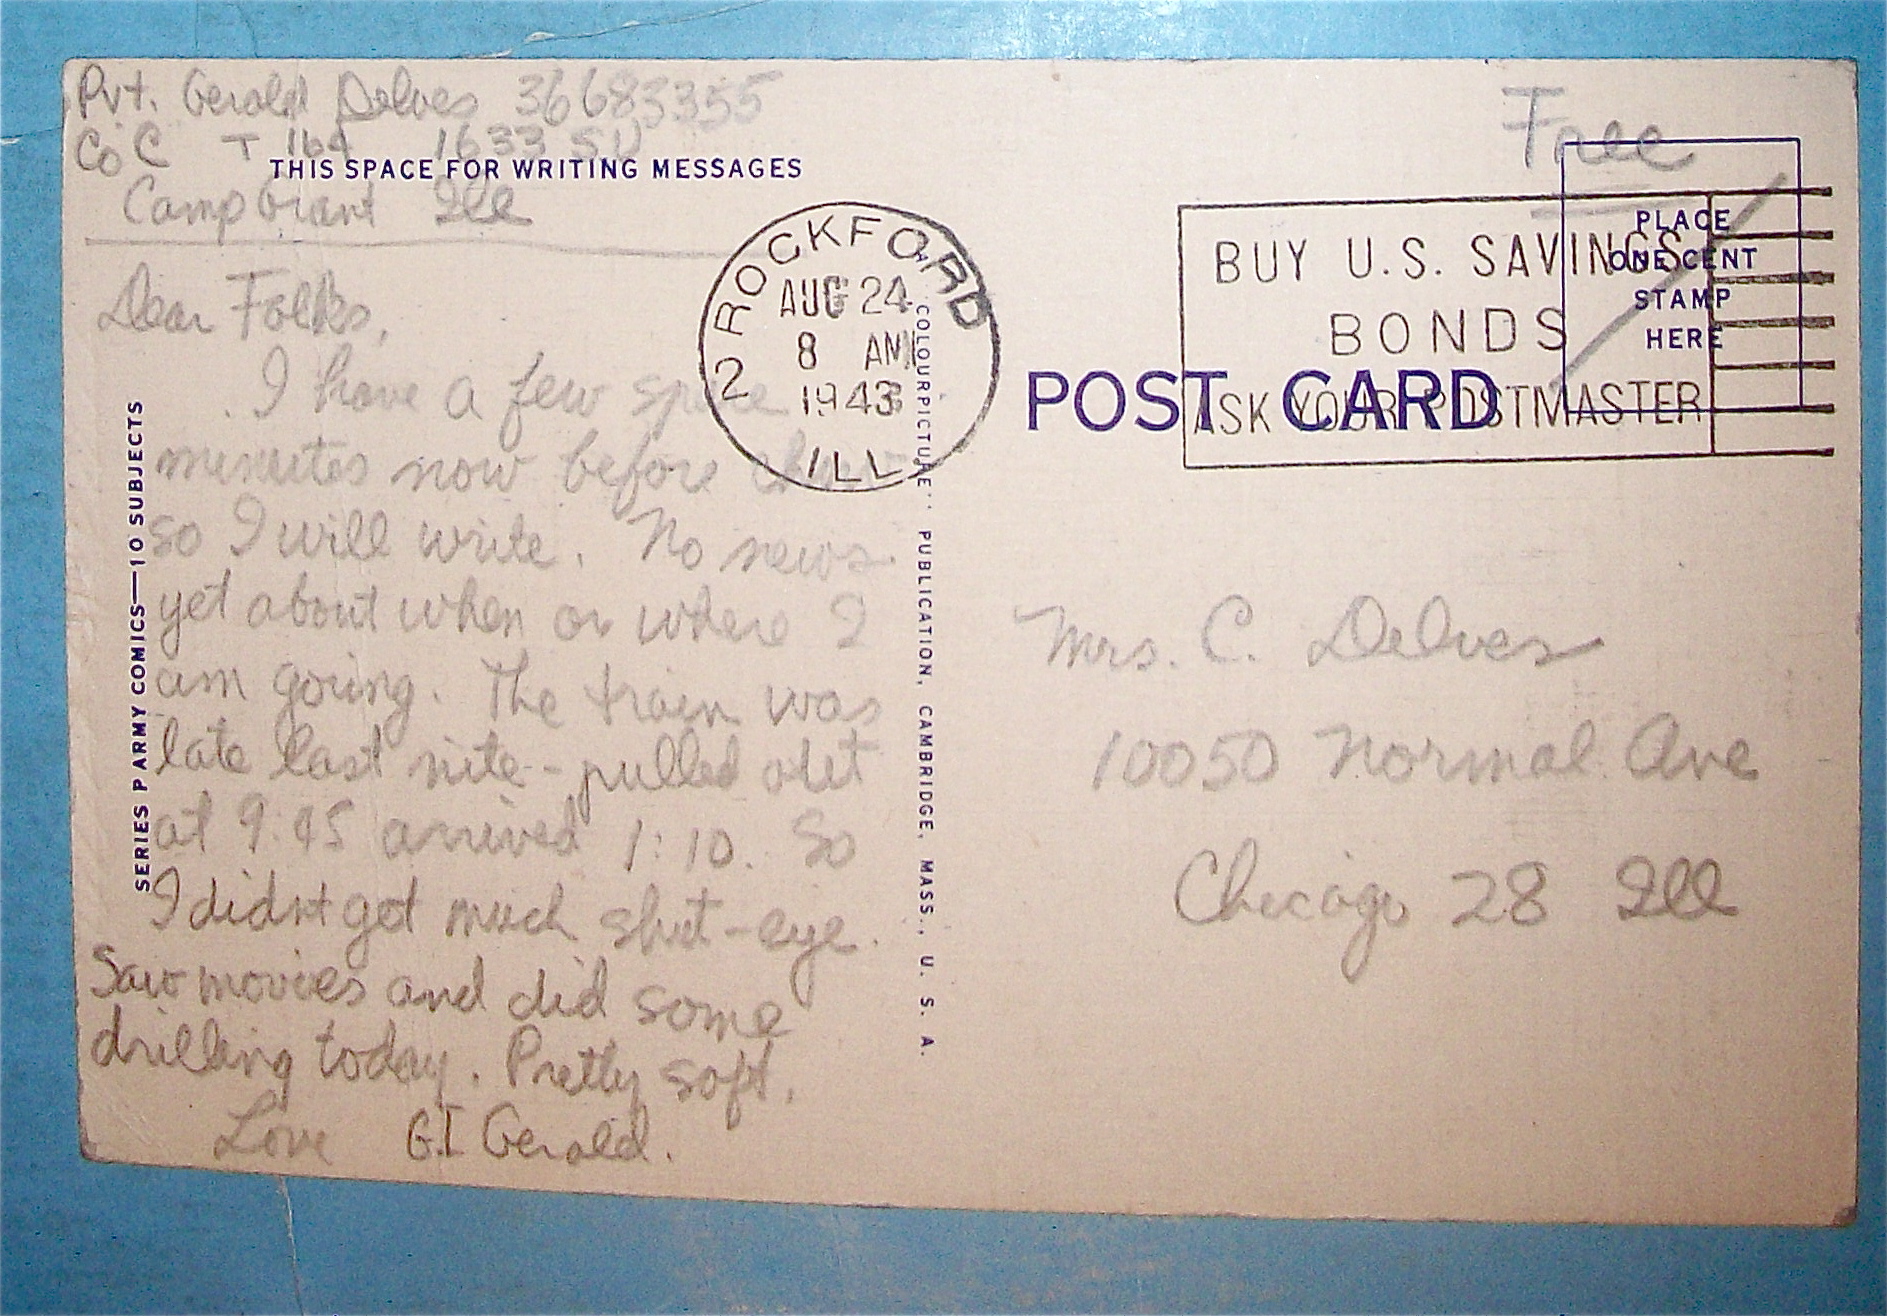 Pvt. Gerald Delves 36683355
Co C T 164 1633 SU
THIS SPACE FOR WRITING MESSAGES
Camp Grant Ill
Dear Folks,
I have a few spare
minutes now before chow
so I will write. No news
yet about when or where I
am going. The train was
late last nite - pulled out
at 9:45 arrived 1:10. So
I didnt get much shut-eye.
Saw movies and did some
drilling today. Pretty soft.
Love GI Gerald.
SERIES P ARMY COMICS—10 SUBJECTS
2 ROCKFORD
AUG 24
8 AM
1943
ILL
COLOURPICTURE" PUBLICATION, CAMBRIDGE, MASS., U. S. A.
Free
PLACE
ONE CENT
STAMP
HERE
BUY U.S. SAVINGS
BONDS
ASK YOUR POSTMASTER
POST CARD
Mrs. C. Delves
10050 Normal Ave
Chicago 28 Ill